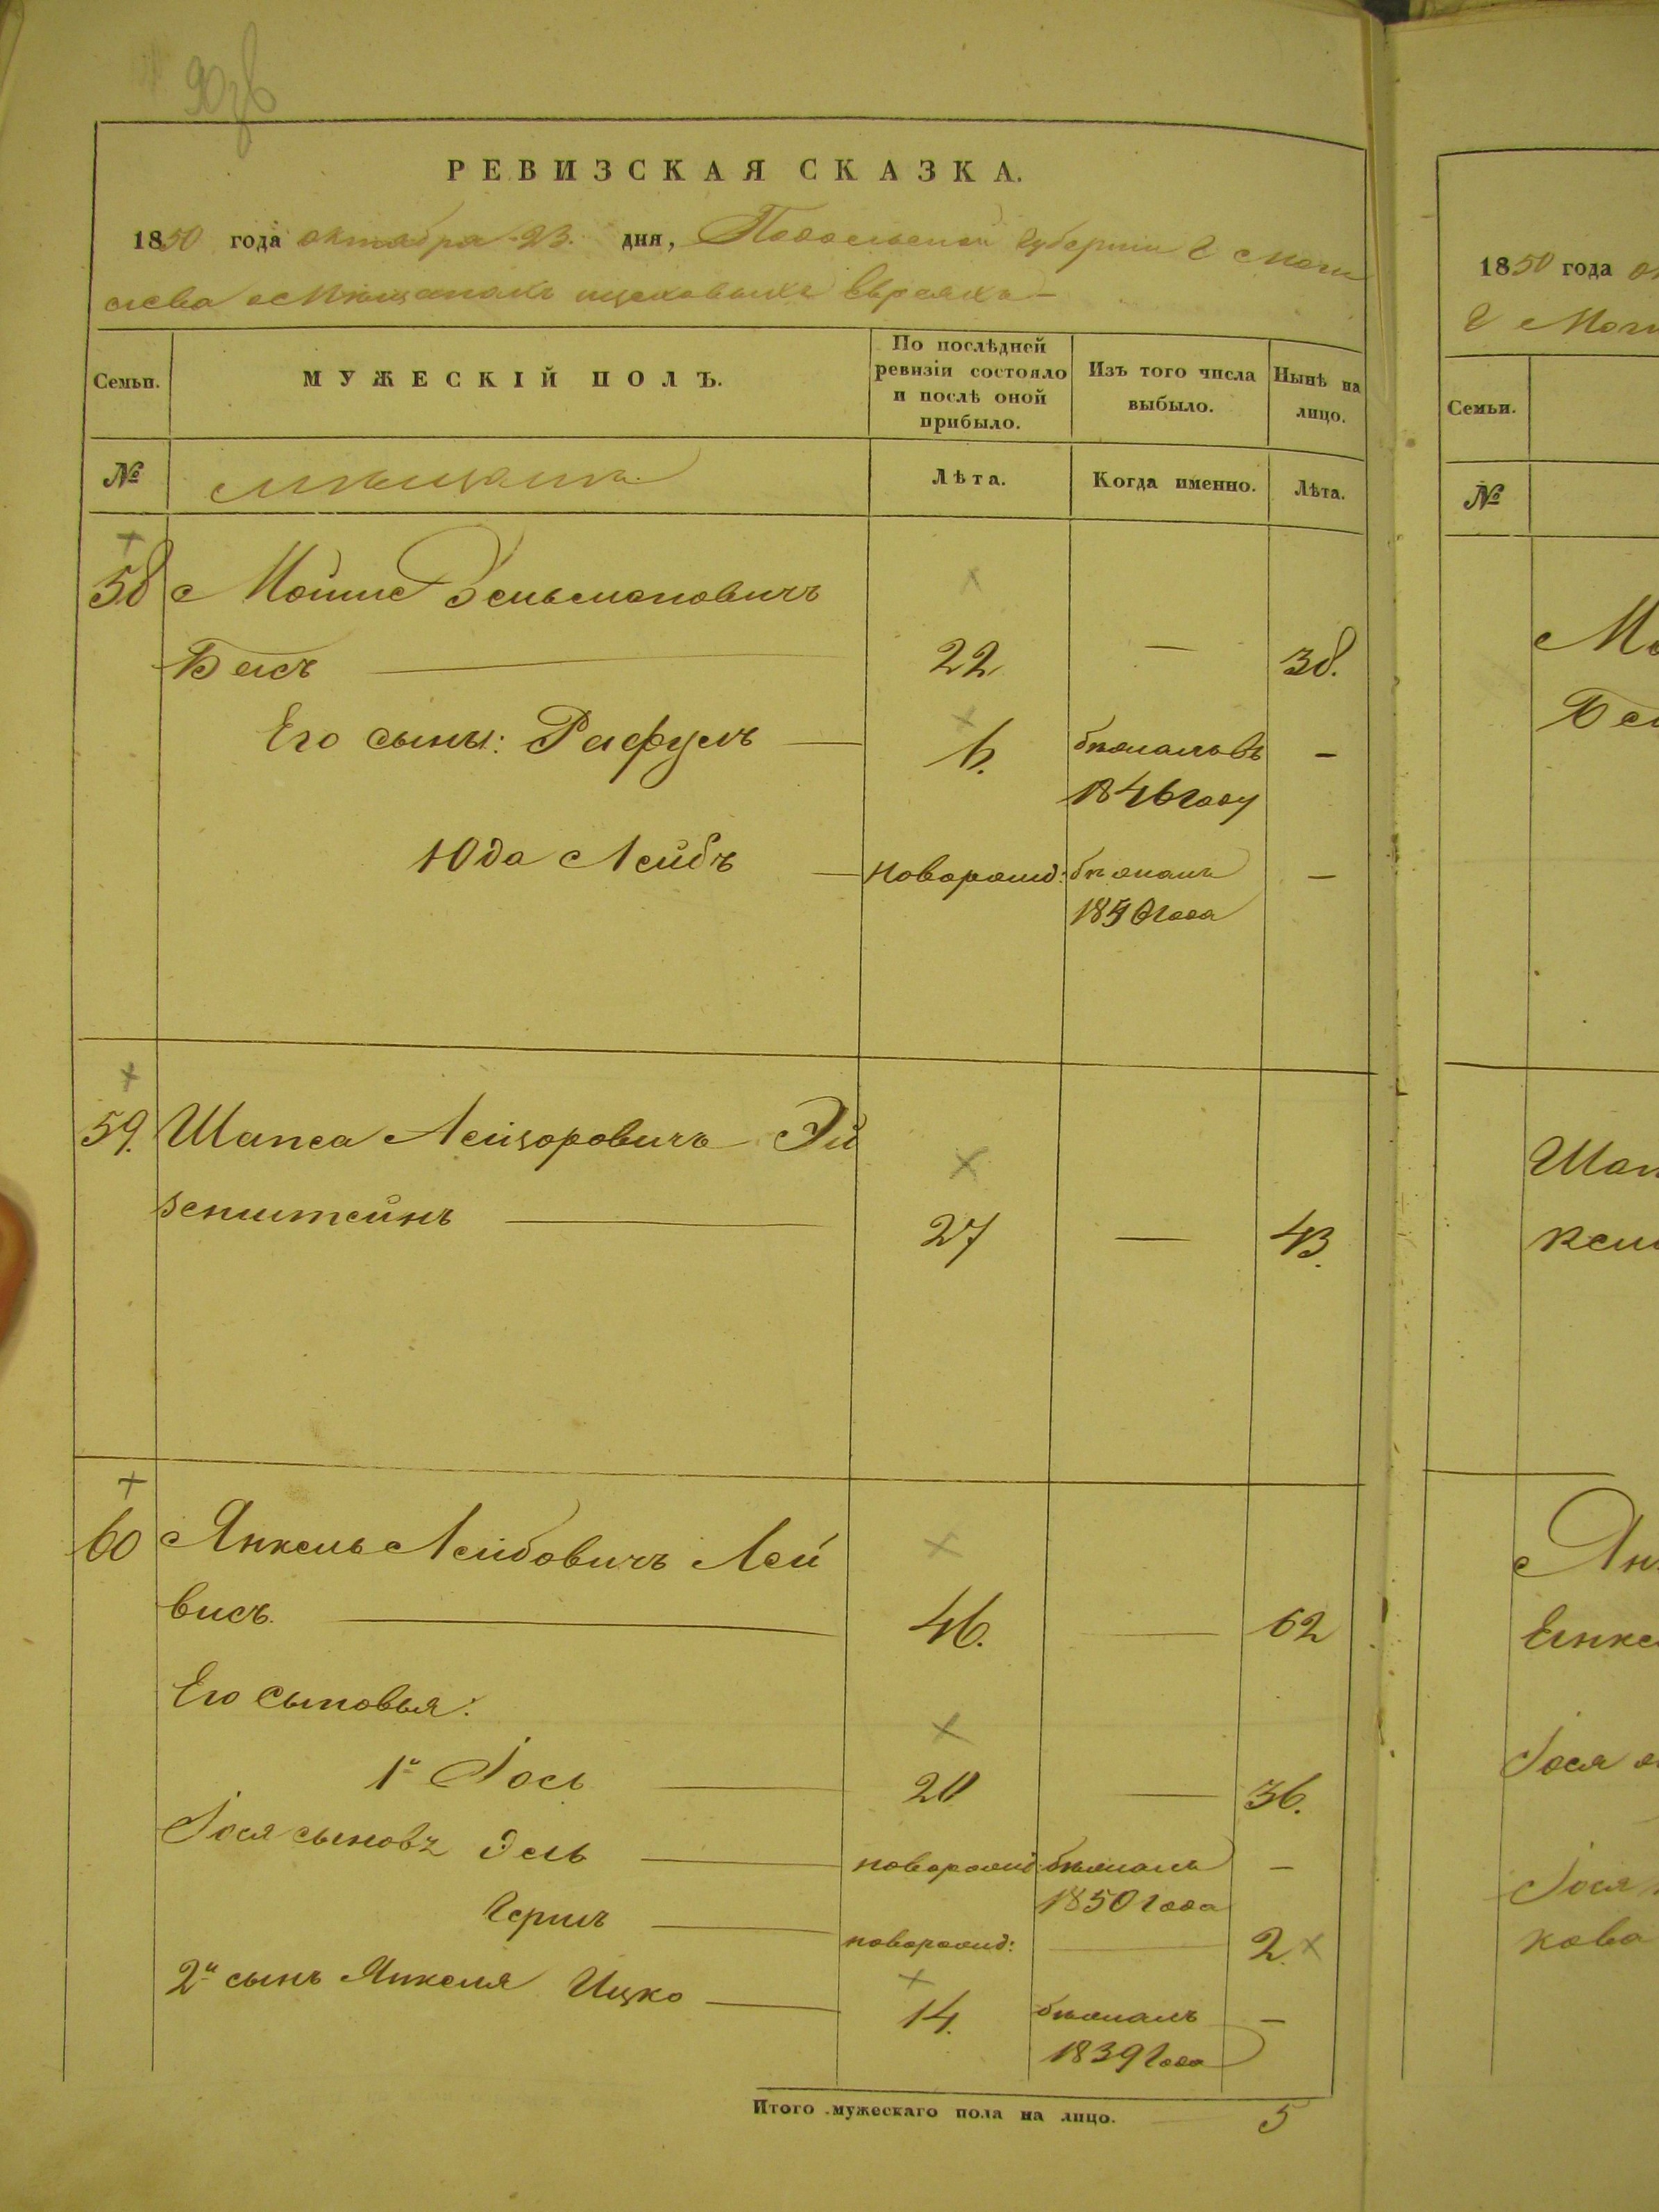 90 об
РЕВИЗСКАЯ СКАЗКА.
1850 года октября 23. дня, Подольской Губернии г Моги
лева о Мещанахъ цеховыхъ Евреяхъ
Семьи.
МУЖЕСКІЙ ПОЛЪ.
По послѣдней ревизіи состояло и послѣ оной прибыло.
Изъ того числа выбыло.
Нынѣ на лицо.
№
мѣщанъ
Лѣта.
Когда именно.
Лѣта.
58 Мошко Зельмановичъ
Басъ 22 — 38.
Его сыны: Рафулъ — 6. бѣжалъ въ —
1846 году
Юда Лейбъ — новорожд: бѣжалъ —
года
59. Шапса Лейзоровичъ Эй
зенштейнъ — 27 — 43.
60 Янкель Лейбовичъ Лей
висъ. — 46. — 62
Его сыновья:
1й Іось — 20 — 36.
Іося сыновъ Эль — новорожд: бѣжалъ —
1850 года
Гершъ — новорожд: — 2.
2й сынъ Янкеля Ицко — 14. бѣжалъ —
1839 года
Итого мужескаго пола на лицо. 5
1850 года
г Моги
Семьи.
№